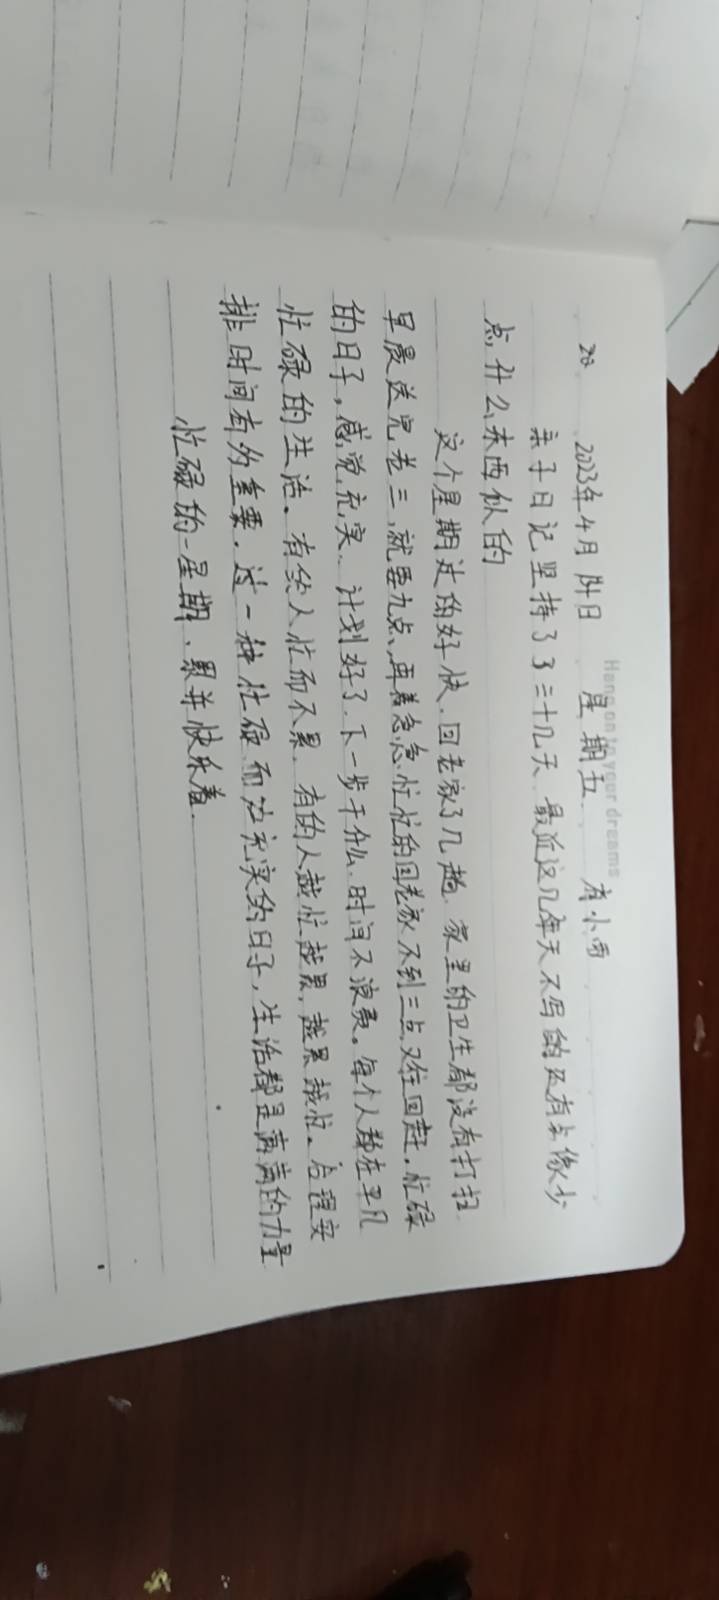 Hang on to your dreams
28 2023年4月14日 星期五 有小雨
亲子日记坚持了了二十几天.最近这几天不写的还有点像少
点什么东西似的
这个星期过的好快.回老家了几趟.家里的卫生都没有打扫
早晨送完老三,就要九点、再着急急忙忙的回老家不到三点又往回赶.忙碌
的日子,感觉充实.计划好了.下一步干什么.时间不浪费。每个人都在平凡
忙碌的生活。有的人忙而不累.有的人越忙越累,越累越忙。合理安
排时间有多重要.过一种忙碌而又充实的日子,生活都是满满的力量
忙碌的一星期、累并快乐着.